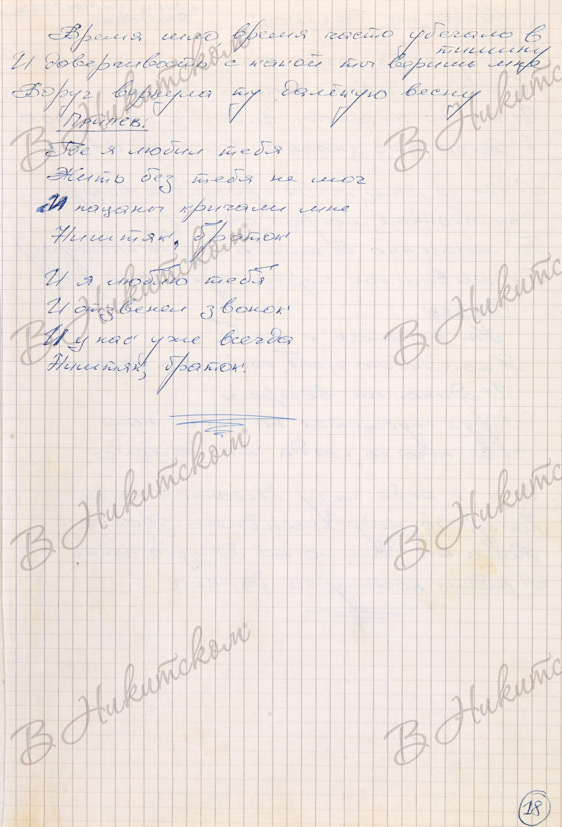 Время шло время часто убегало в
тишину
И доверчивость с какой ты веришь мне
Вдруг вернула ту далёкую весну
Припев:
Где я любил тебя
Жить без тебя не мог
И пацаны кричали мне
Ништяк, браток
И я люблю тебя
И отзвенел звонок
И у нас уже всегда
Ништяк, браток.
В Никитском
В Никитском
В Никитском
В Никитском
В Никитском
В Никитском
В Никитском
В Никитском
18